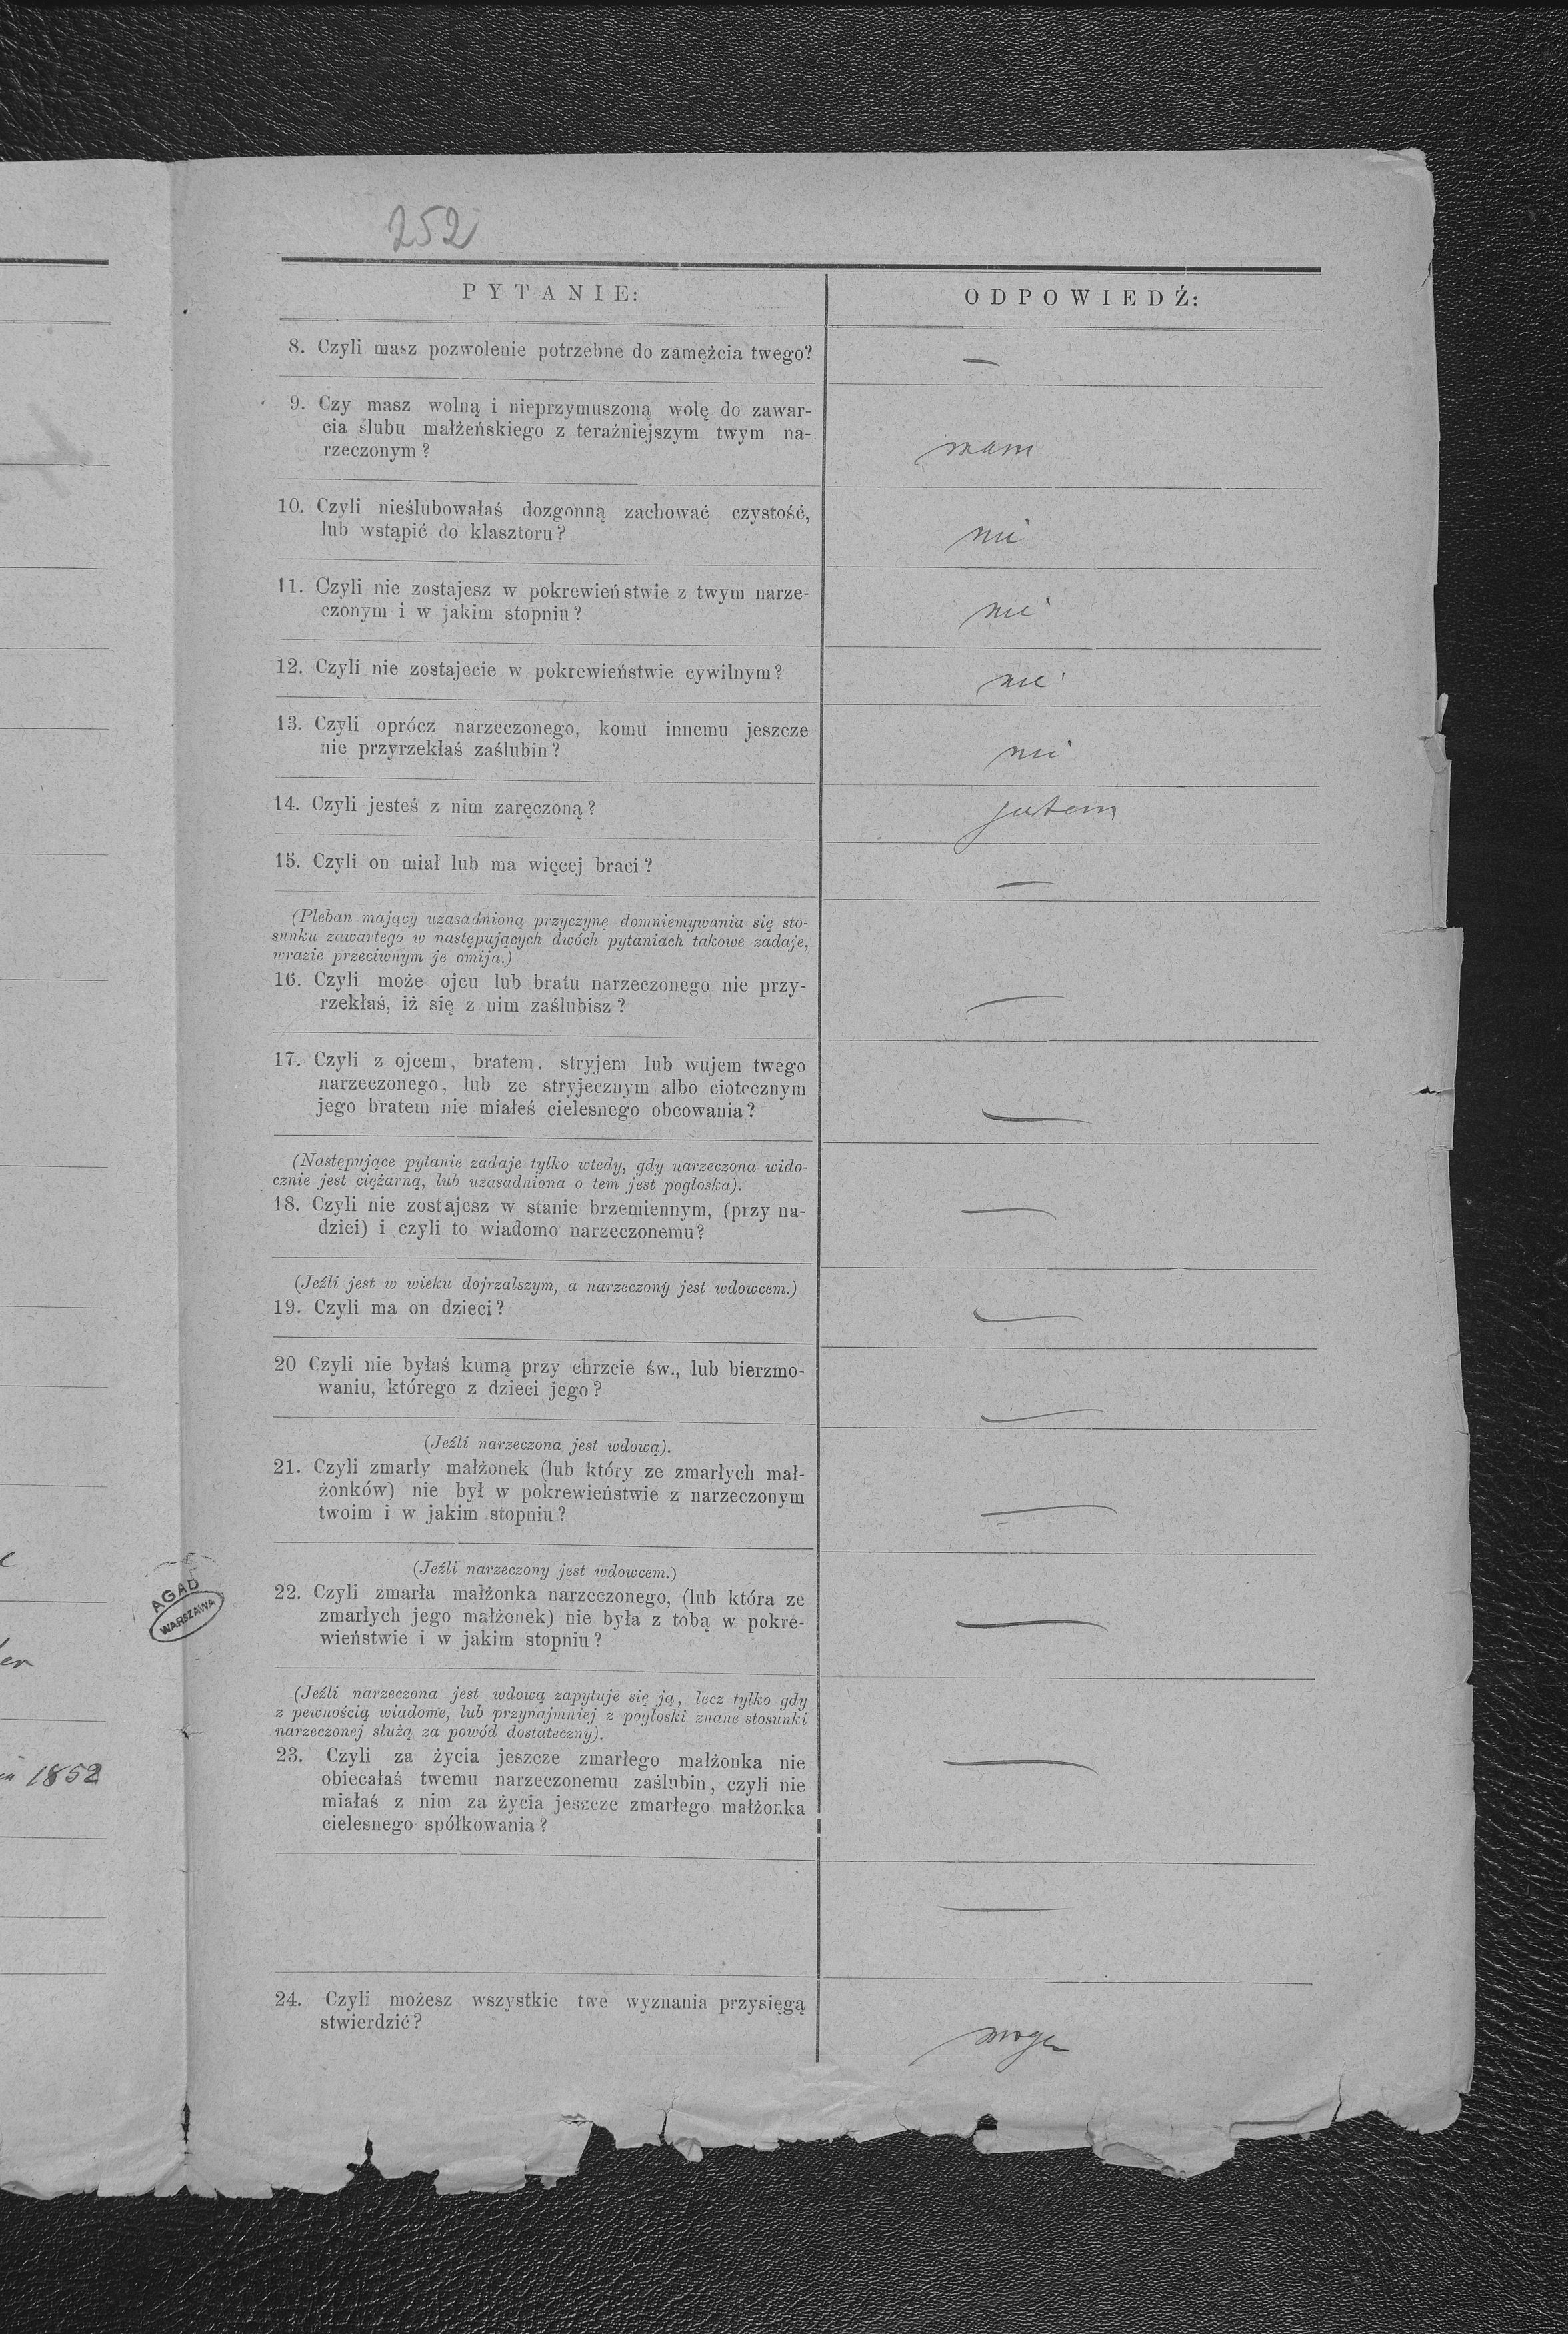 252
PYTANIE:
ODPOWIEDŹ:
8. Czyli masz pozwolenie potrzebne do zamężcia twego?
—
9. Czy masz wolną i nieprzymuszoną wolę do zawar-
cia ślubu małżeńskiego z teraźniejszym twym na-
rzeczonym?
mam
10. Czyli nieślubowałaś dozgonną zachować czystość,
lub wstąpić do klasztoru?
nie
11. Czyli nie zostajesz w pokrewieństwie z twym narze-
czonym i w jakim stopniu?
nie
12. Czyli nie zostajecie w pokrewieństwie cywilnym?
nie
13. Czyli oprócz narzeczonego, komu innemu jeszcze
nie przyrzekłaś zaślubin?
nie
14. Czyli jesteś z nim zaręczoną?
jestem
15. Czyli on miał lub ma więcej braci?
—
(Pleban mający uzasadnioną przyczynę domniemywania się sto-
sunku zawartego w następujących dwóch pytaniach takowe zadaje,
wrazie przeciwnym je omija.)
16. Czyli może ojcu lub bratu narzeczonego nie przy-
rzekłaś, iż się z nim zaślubisz?
—
17. Czyli z ojcem, bratem, stryjem lub wujem twego
narzeczonego, lub ze stryjecznym albo ciotecznym
jego bratem nie miałeś cielesnego obcowania?
—
(Następujące pytanie zadaje tylko wtedy, gdy narzeczona wido-
cznie jest ciężarną, lub uzasadniona o tem jest pogłoska).
18. Czyli nie zostajesz w stanie brzemiennym, (przy na-
dziei) i czyli to wiadomo narzeczonemu?
—
(Jeźli jest w wieku dojrzalszym, a narzeczony jest wdowcem.)
19. Czyli ma on dzieci?
—
20 Czyli nie byłaś kumą przy chrzcie św., lub bierzmo-
waniu, którego z dzieci jego?
—
(Jeźli narzeczona jest wdową).
21. Czyli zmarły małżonek (lub który ze zmarłych mał-
żonków) nie był w pokrewieństwie z narzeczonym
twoim i w jakim stopniu?
—
(Jeźli narzeczony jest wdowcem.)
22. Czyli zmarła małżonka narzeczonego, (lub która ze
zmarłych jego małżonek) nie była z tobą w pokre-
wieństwie i w jakim stopniu?
—
(Jeźli narzeczona jest wdową zapytuje się ją, lecz tylko gdy
z pewnością wiadome, lub przynajmniej z pogłoski znane stosunki
narzeczonej służą za powód dostateczny).
23. Czyli za życia jeszcze zmarłego małżonka nie
obiecałaś twemu narzeczonemu zaślubin, czyli nie
miałaś z nim za życia jeszcze zmarłego małżonka
cielesnego spółkowania?
—
—
24. Czyli możesz wszystkie twe wyznania przysięgą
stwierdzić?
mogę
AGAD
WARSZAWA
1852